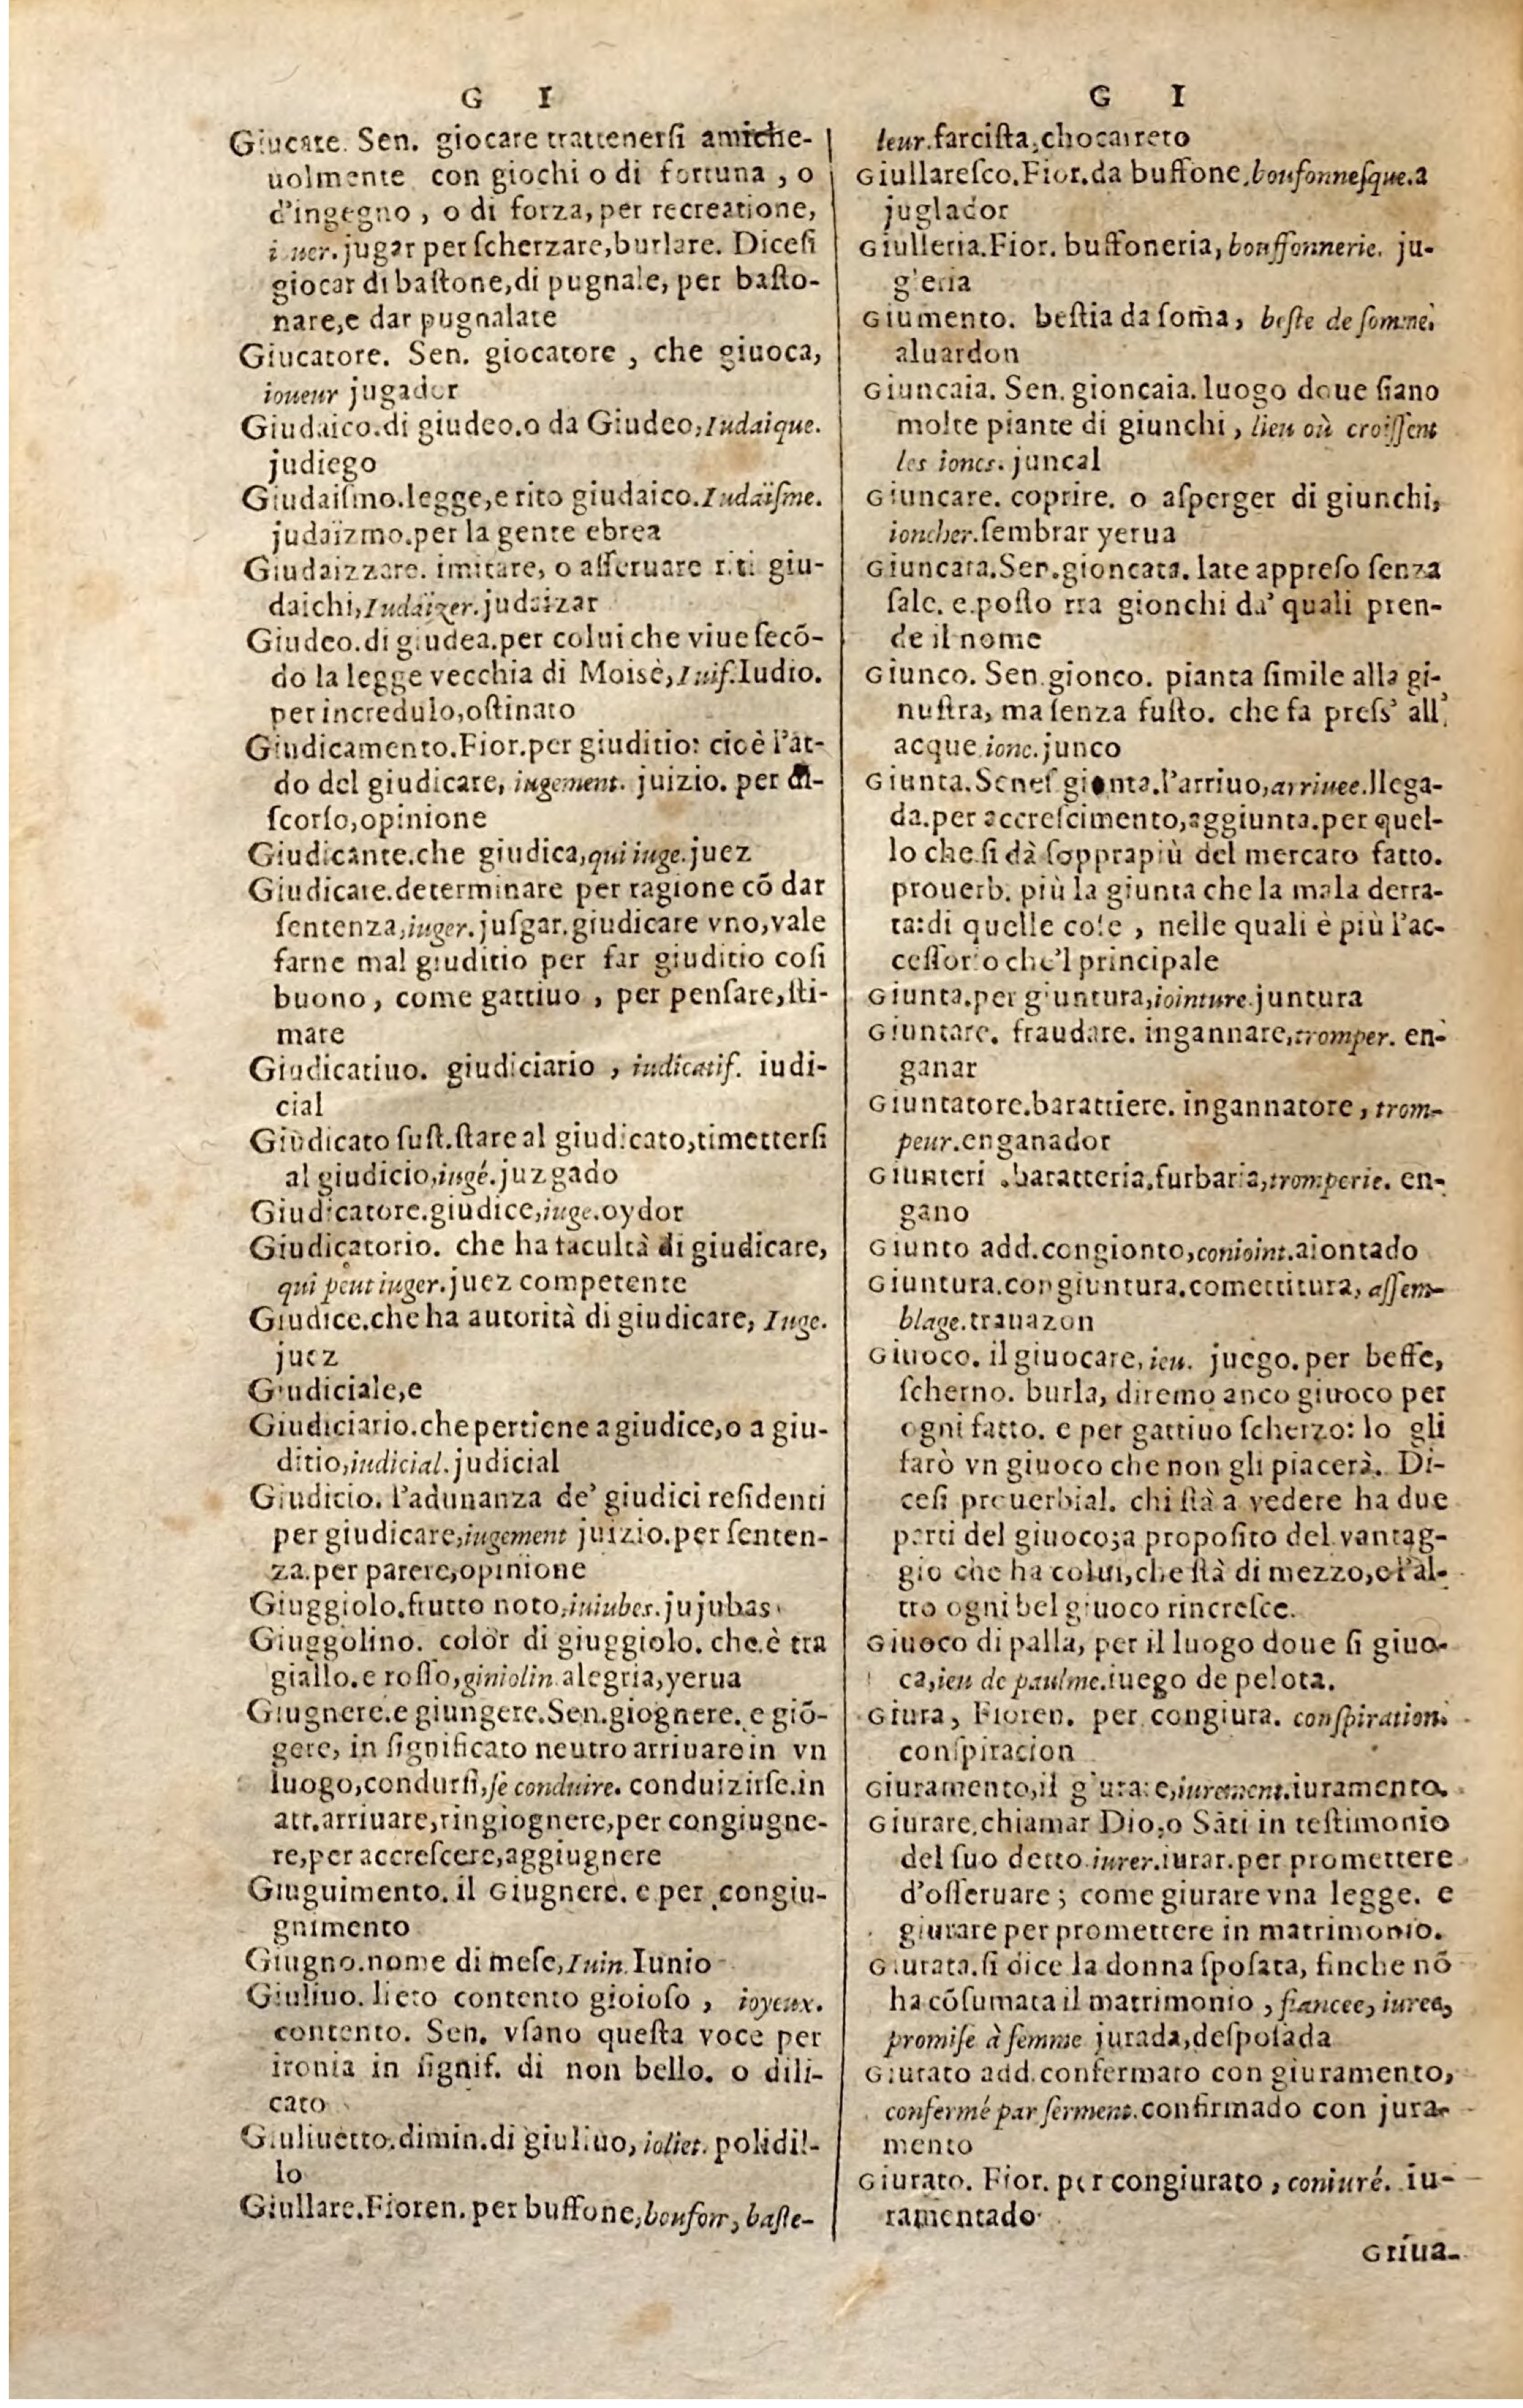 G I
Giucare. Sen. giocare trattenersi amiche-
uolmente con giochi o di fortuna, o
d'ingegno, o di forza, per recreatione,
jugar per ſcherzare,burlare. Diceſi
giocar di baſtone,di pugnale, per baſto-
nare,e dar pugnalate
Giucatore. Sen. giocatore, che giuoca,
ioueur jugador
Giudaico.di giudeo.o da Giudeo,Iudaique.
judiego
Giudaiſmo.legge,e rito giudaico.Iudaïſme.
judaïzmo.per la gente ebrea
Giudaizzare. imitare, o aſſeruare riti giu-
daichi,Iudaïzer.judaizar
Giudeo.di giudea.per colui che viue ſecō-
do la legge vecchia di Moisè,Iuif.Iudio.
per incredulo,oſtinato
Giudicamento.Fior.per giuditio: cioè l'at-
do del giudicare, iugement. juizio. per di-
ſcorſo,opinione
Giudicante.che giudica,qui iuge.juez
Giudicare.determinare per ragione cō dar
ſentenza,iuger.juſgar.giudicare vno,vale
farne mal giuditio per far giuditio coſi
buono, come gattiuo, per penſare,ſti-
mare
Giudicatiuo. giudiciario, iudicatif. iudi-
cial
Giudicato ſuſt.ſtare al giudicato,rimetterſi
al giudicio,iugé.juzgado
Giudicatore.giudice,iuge.oydor
Giudicatorio. che ha facultà di giudicare,
qui peut iuger.juez competente
Giudice.che ha autorità di giudicare, Iuge.
juez
Giudiciale,e
Giudiciario.che pertiene a giudice,o a giu-
ditio,iudicial.judicial
Giudicio. l'adunanza de' giudici reſidenti
per giudicare,iugement juizio.per ſenten-
za.per parere,opinione
Giuggiolo.frutto noto,iuiubes.jujubas
Giuggolino. color di giuggiolo. che.è tra
giallo.e roſſo,giniolin.alegria,yerua
Giugnere.e giungere.Sen.giognere. e giō-
gere, in ſignificato neutro arriuare in vn
luogo,condurſi,ſe conduire. conduizirſe.in
att.arriuare,ringiognere,per congiugne-
re,per accreſcere,aggiugnere
Giuguimento. il Giugnere. e per congiu-
gnimento
Giugno.nome di meſe,Iuin.Iunio
Giuliuo. lieto contento gioioſo, ioyeux.
contento. Sen. vſano queſta voce per
ironia in ſignif. di non bello. o dili-
cato
Giuliuetto.dimin.di giuliuo, ioliet. polidil-
lo
Giullare.Fioren. per buffone,boufon, baſte-
G I
leur.farciſta,chocarreto
Giullareſco.Fior.da buffone.boufonneſque.a
juglador
Giulleria.Fior. buffoneria, bouffonnerie. ju-
gleria
Giumento. beſtia da ſoma, beſte de ſomme.
aluardon
Giuncaia. Sen. gioncaia. luogo doue ſiano
molte piante di giunchi, lieu où croiſſent
les ioncs. juncal
Giuncare. coprire. o aſperger di giunchi,
ioncher.ſembrar yerua
Giuncata.Sen.gioncata. late appreſo ſenza
ſale. e.poſto tra gionchi da' quali pren-
de il nome
Giunco. Sen.gionco. pianta ſimile alla gi-
nuſtra, ma ſenza fuſto. che fa preſs' all'
acque.ionc.junco
Giunta.Seneſ gionta.l'arriuo,arriuee.llega-
da.per accreſcimento,aggiunta.per quel-
lo che ſi dà ſopprapiù del mercato fatto.
prouerb. più la giunta che la mala derra-
ta:di quelle coſe, nelle quali è più l'ac-
ceſſorio che'l principale
Giunta.per giuntura,iointure.juntura
Giuntare. fraudare. ingannare,tromper. en-
ganar
Giuntatore.barattiere. ingannatore, trom-
peur.enganador
Giunteri .baratteria.furbaria,tromperie. en-
gano
Giunto add.congionto,conioint.aiontado
Giuntura.congiuntura.comettitura, aſſem-
blage.trauazon
Giuoco. il giuocare,ieu. juego.per beffe,
ſcherno. burla, diremo anco giuoco per
ogni fatto. e per gattiuo ſcherzo: Io gli
farò vn giuoco che non gli piacerà. Di-
ceſi prouerbial. chi ſtà a vedere ha due
parti del giuoco;a propoſito del vantag-
gio che ha colui,che ſtà di mezzo,e l'al-
tro ogni bel giuoco rincreſce.
Giuoco di palla, per il luogo doue ſi giuo-
ca,ieu de paulme.iuego de pelota.
Giura, Fioren. per congiura. conſpiration.
conſpiracion
Giuramento,il giurare,iurement.iuramento.
Giurare.chiamar Dio,o Sāti in teſtimonio
del ſuo detto.iurer.iurar.per promettere
d'oſſeruare; come giurare vna legge. e
giurare per promettere in matrimonio.
Giurata.ſi dice la donna ſpoſata, finche nō
ha cōſumata il matrimonio, fiancee, iuree,
promiſe à femme jurada,deſpoſada
Giurato add.confermato con giuramento,
confermé par ſerment.confirmado con jura-
mento
Giurato. Fior. per congiurato, coniuré. iu-
ramentado